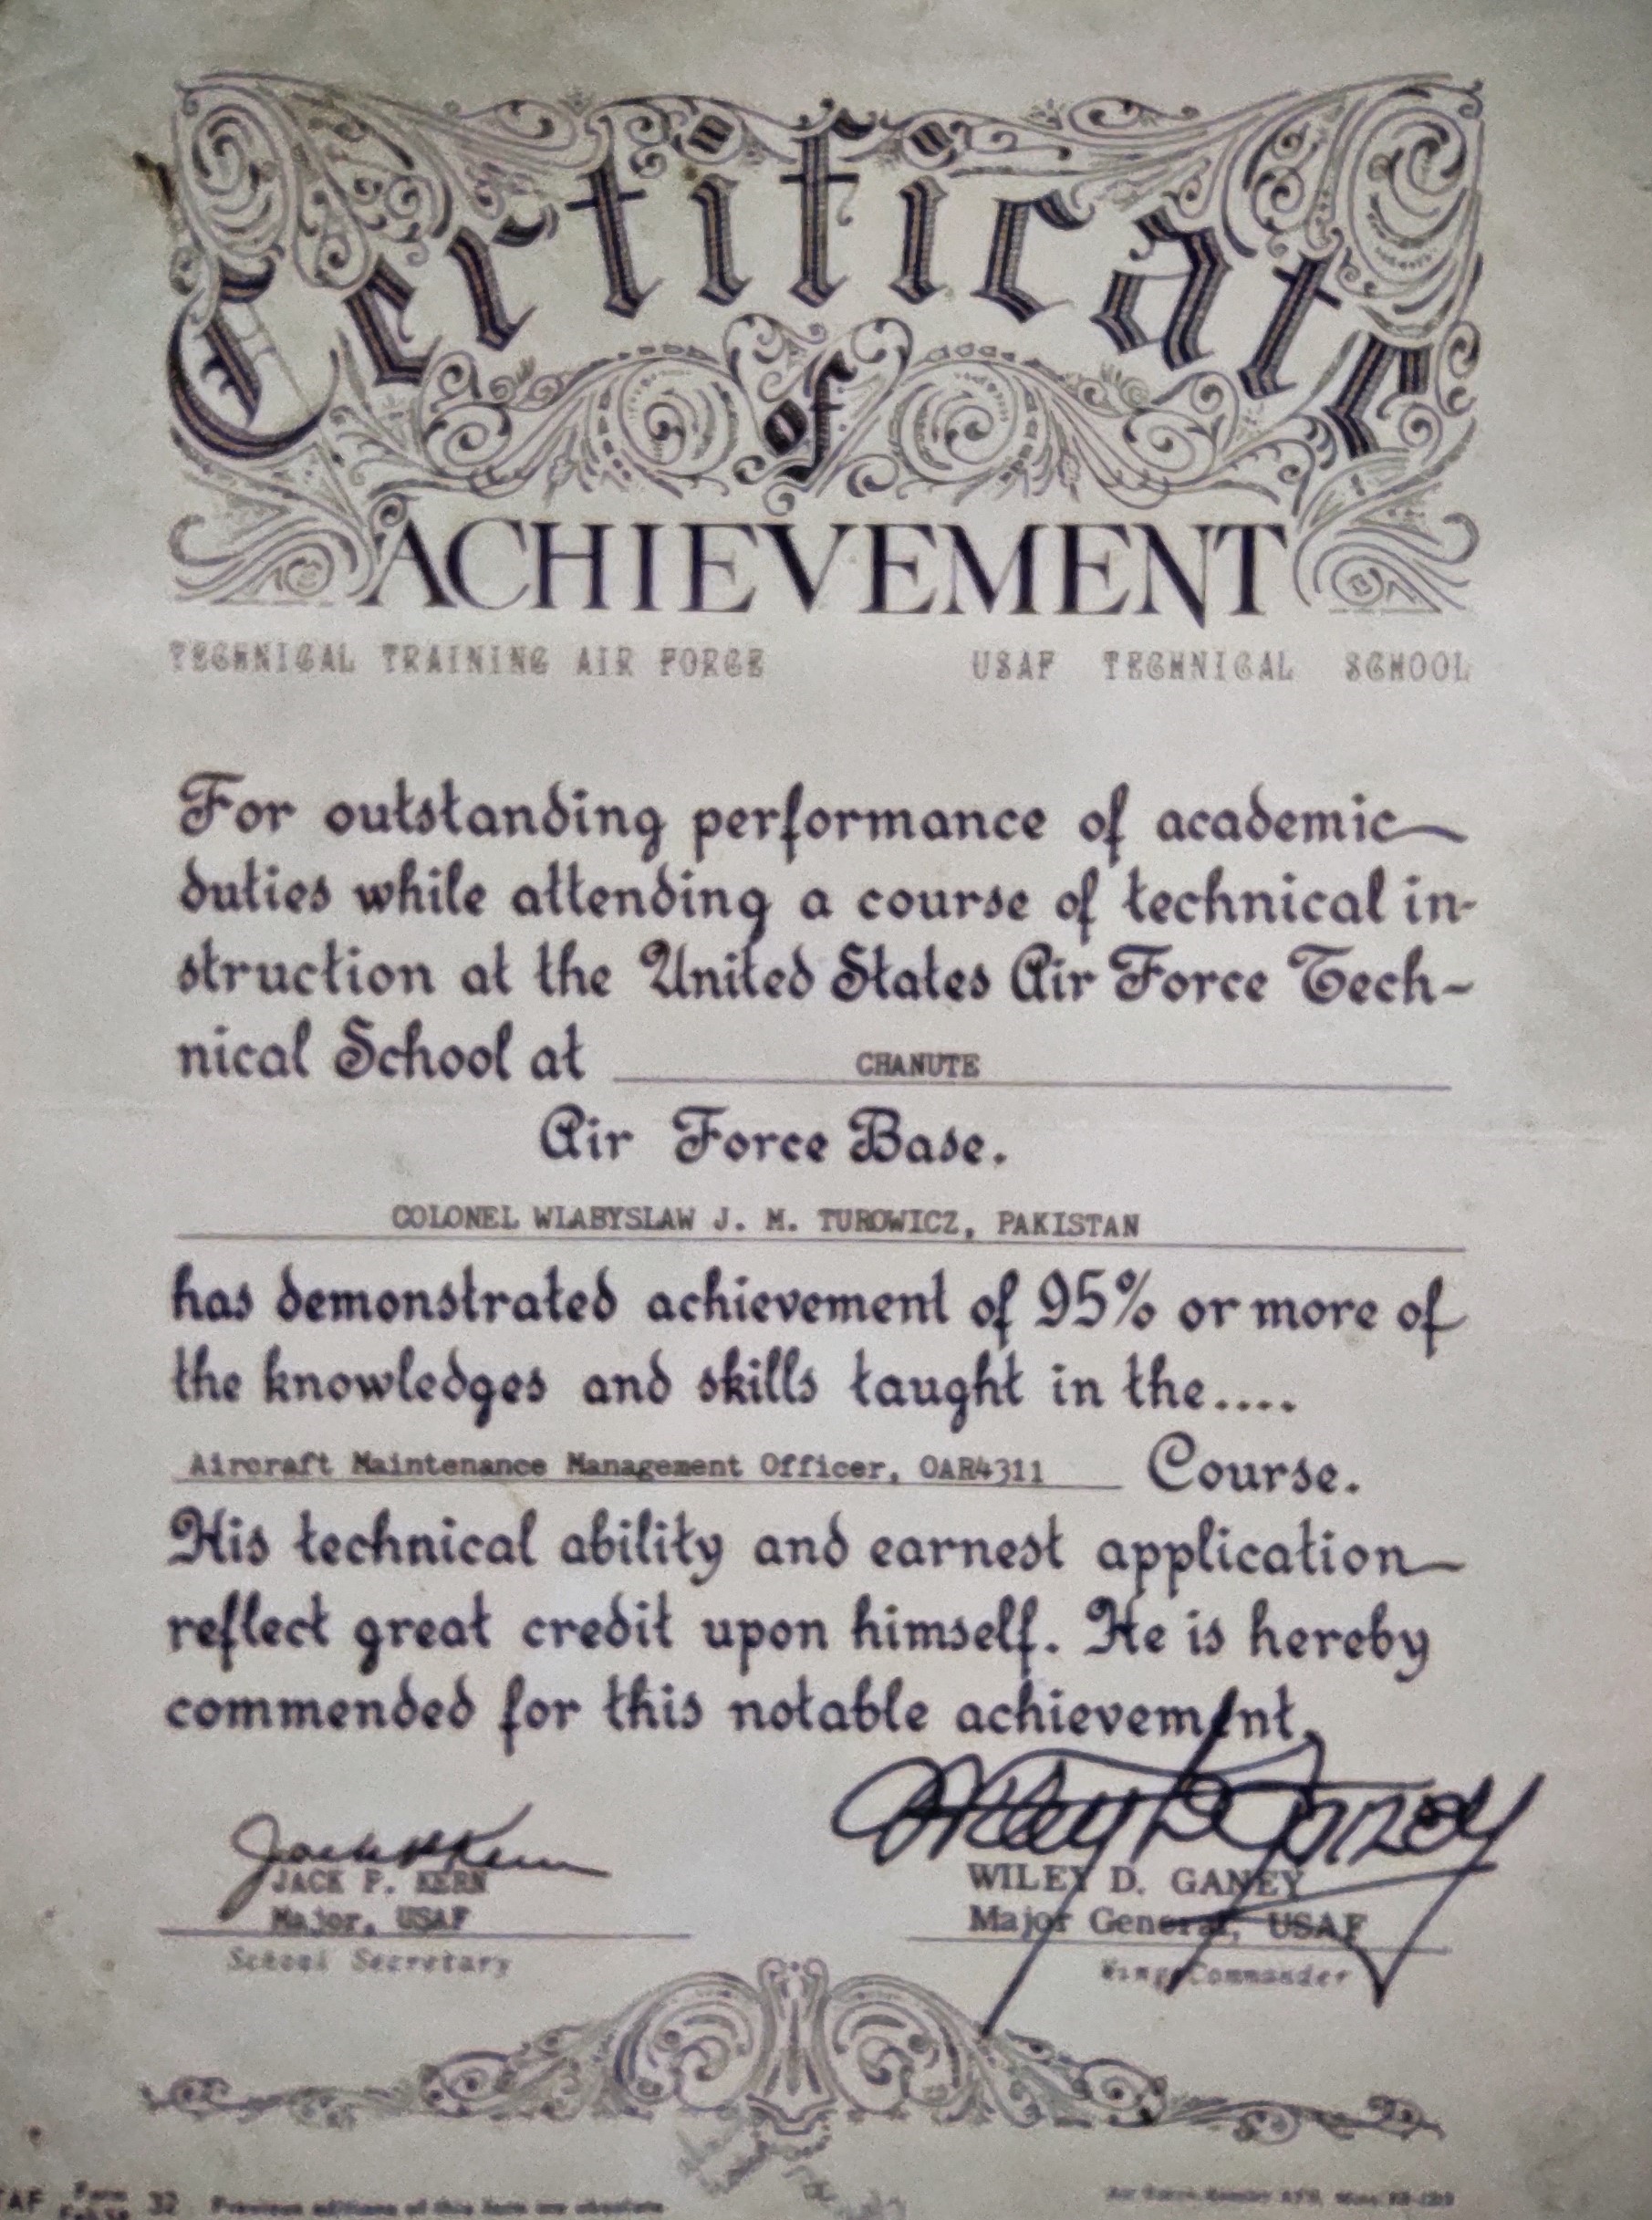 Certificate
of
ACHIEVEMENT
TECHNICAL TRAINING AIR FORCE USAF TECHNICAL SCHOOL
For outstanding performance of academic
duties while attending a course of technical in-
struction at the United States Air Force Tech-
nical School at CHANUTE
Air Force Base.
COLONEL WLABYSLAW J. M. TUROWICZ, PAKISTAN
has demonstrated achievement of 95% or more of
the knowledges and skills taught in the....
Aircraft Maintenance Management Officer, OAR4311 Course.
His technical ability and earnest application
reflect great credit upon himself. He is hereby
commended for this notable achievement.
Jack P. Kern Wiley D. Ganey
JACK P. KERN WILEY D. GANEY
Major, USAF Major General, USAF
School Secretary Wing Commander
Form 32 Previous editions of this form are obsolete